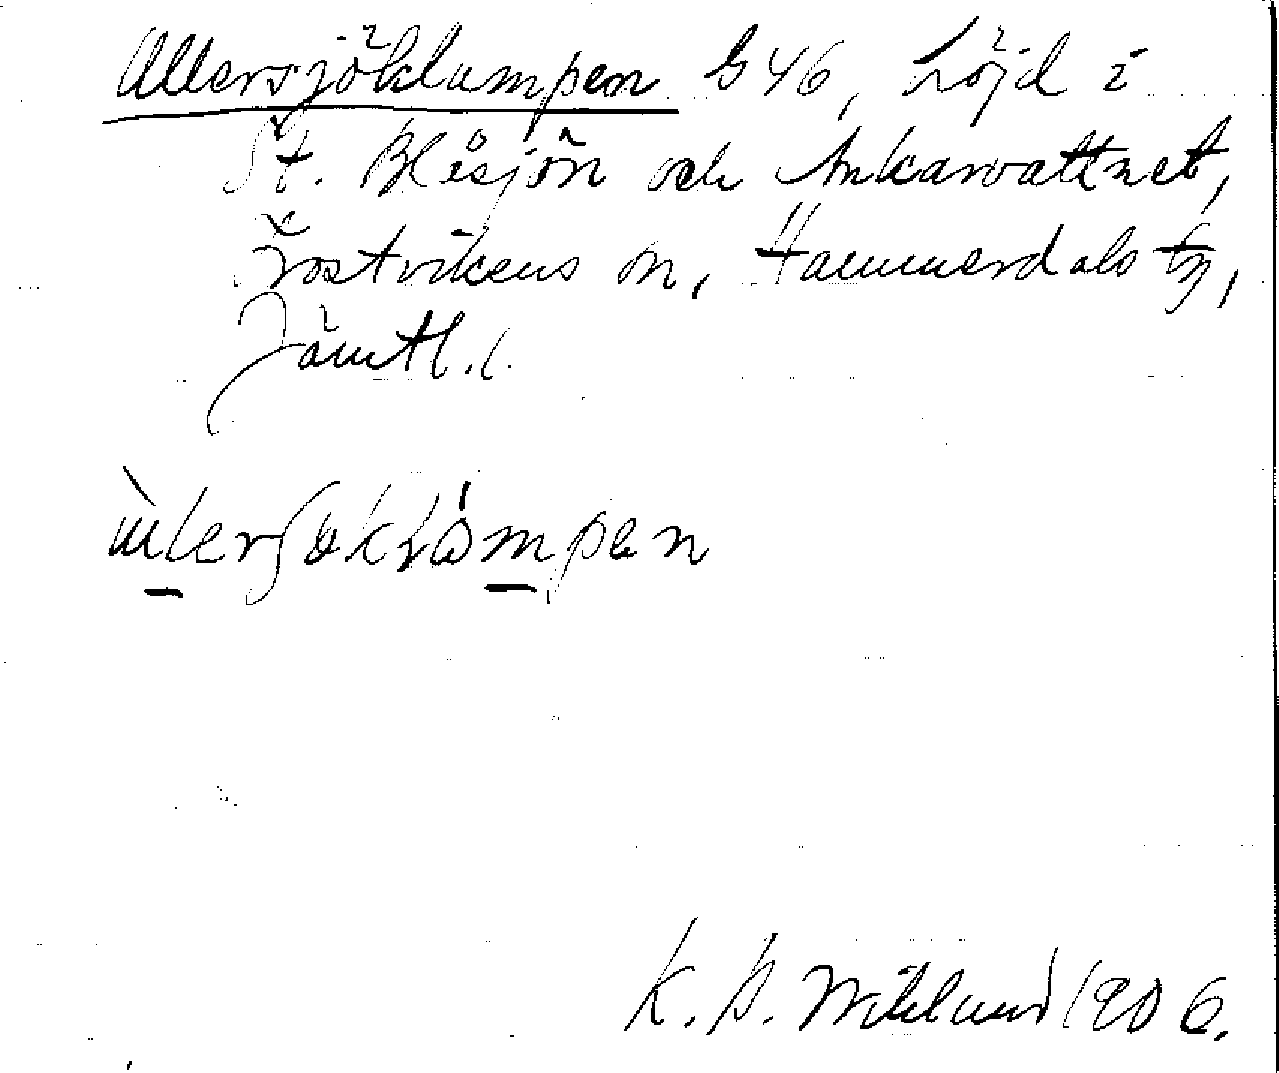 Allersjöklumpen G 46, höjd i
St. Blåsjön och Ankarvattnet,
Frostvikens sn, Hammerdals tg,
Jämtl. l.
K. B. Wiklund 1906.